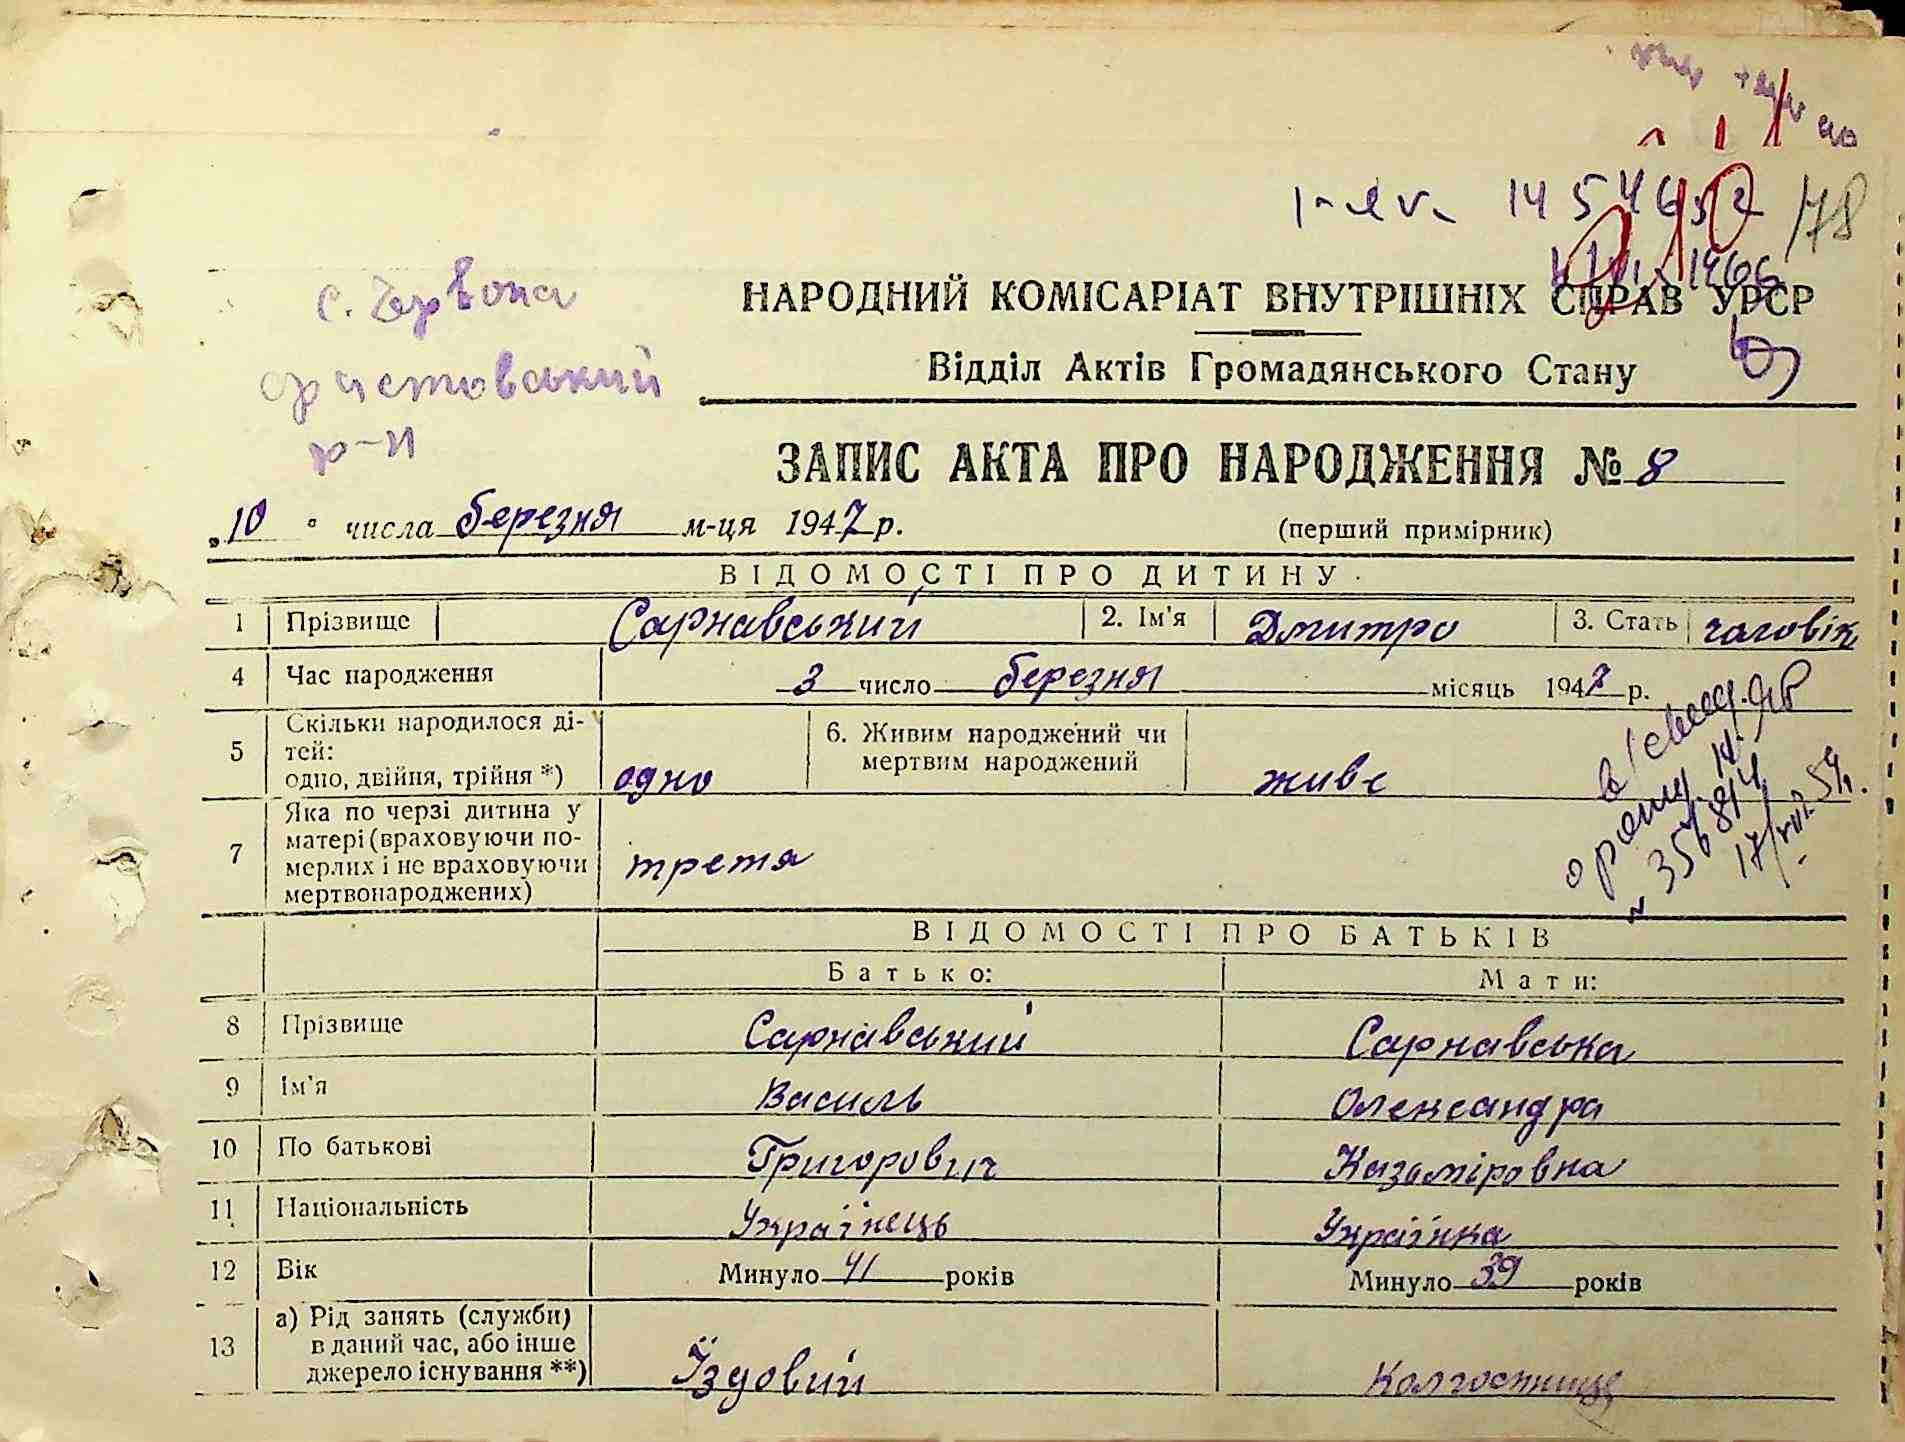 14 54652 178
1966
с. Червона
НАРОДНИЙ КОМІСАРІАТ ВНУТРІШНІХ СПРАВ УРСР
Відділ Актів Громадянського Стану
р-н
ЗАПИС АКТА ПРО НАРОДЖЕННЯ № 8
„10" числа березня м-ця 1947 р. (перший примірник)
ВІДОМОСТІ ПРО ДИТИНУ
1 Прізвище Сарнавський 2. Ім'я Дмитро 3. Стать чаловік
4 Час народження 3 число березня місяць 1947 р.
5 Скільки народилося ді-
тей:
одно, двійня, трійня *) одно 6. Живим народжений чи
мертвим народжений живе
7 Яка по черзі дитина у
матері (враховуючи по-
мерлих і не враховуючи
мертвонароджених) третя
ВІДОМОСТІ ПРО БАТЬКІВ
Батько: Мати:
8 Прізвище Сарнавський Сарнавська
9 Ім'я Василь Олександра
10 По батькові Григорович Казаміровна
11 Національність Українець Українка
12 Вік Минуло 41 років Минуло 39 років
13 а) Рід занять (служби)
в даний час, або інше
джерело існування **) Їздовий Колгоспниця